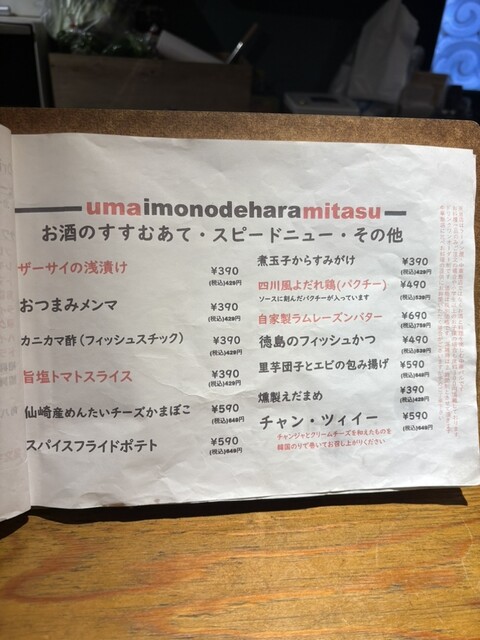 umaimonodeharamitasu
お酒のすすむあて・スピードニュー・その他
ザーサイの浅漬け ¥390
(税込)429円
おつまみメンマ ¥390
(税込)429円
カニカマ酢(フィッシュスチック) ¥390
(税込)429円
旨塩トマトスライス ¥390
(税込)429円
仙崎産めんたいチーズかまぼこ ¥590
(税込)649円
スパイスフライドポテト ¥590
(税込)649円
煮玉子からすみがけ ¥390
(税込)429円
四川風よだれ鶏(パクチー) ¥490
ソースに刻んだパクチーが入っています (税込)539円
自家製ラムレーズンバター ¥690
(税込)759円
徳島のフィッシュかつ ¥490
(税込)539円
里芋団子とエビの包み揚げ ¥590
(税込)649円
燻製えだまめ ¥390
(税込)429円
チャン・ツィイー ¥590
(税込)649円
チャンジャとクリームチーズを和えたものを
韓国のりで巻いてお召し上がりください